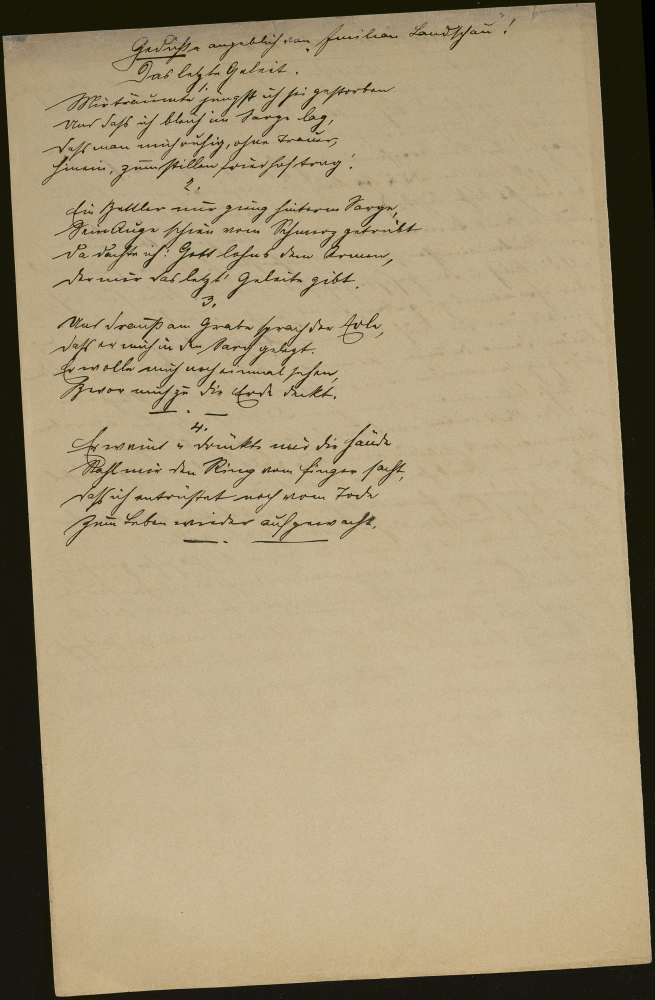 Gedichte angeblich von "Emilian Landschau"!
Das letzte Geleit.
Mir träumte jüngst ich sei gestorben
Und daß ich bleich im Sarge lag,
Daß man mich ruhig, ohne Trauer,
Hinein, zum stillen Friedhof trug!
2.
Ein Bettler nur ging hinterm Sarge,
Sein Auge schien vom Schmerz getrübt
Da dachte ich: Gott lohns dem Armen,
Der mir das letzt' Geleite gibt.
3.
Und drauß am Grabe sprach der Edle,
daß er mich in den Sarg gelegt.
Er wolle mich noch einmal sehen,
Bevor mich zu die Erde deckt.
4.
Er weint u drückte mir die Hände
Stahl mir den Ring vom Finger sacht,
Daß ich entrüstet noch vom Tode
Zum Leben wieder aufgewacht.